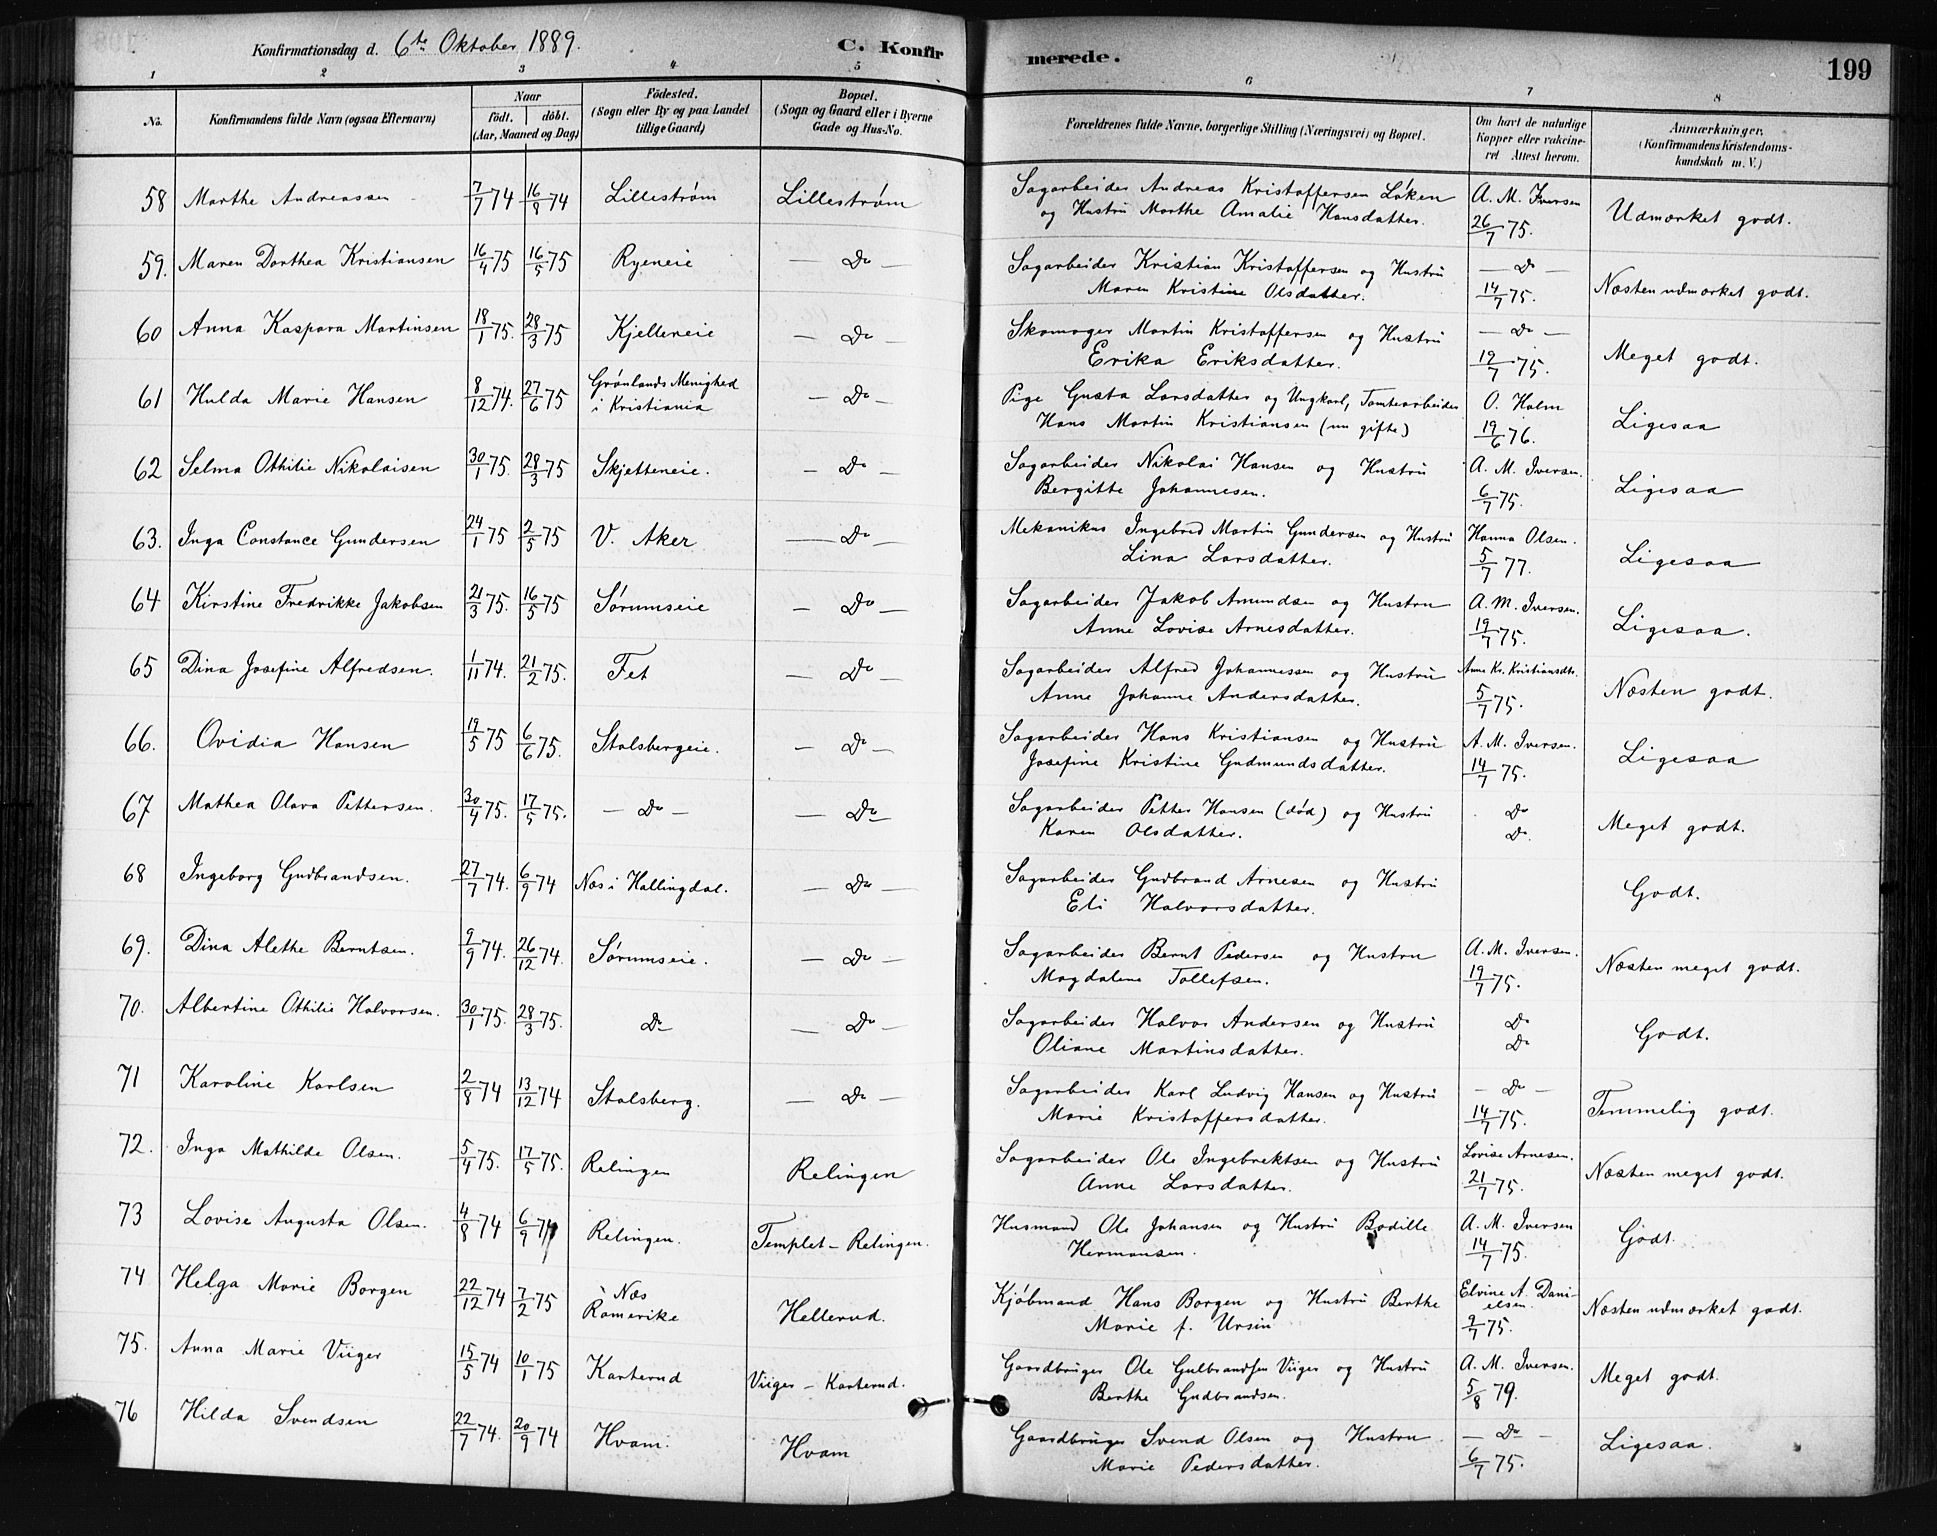 Konfirmationsdag d. 6te Oktober 1889.
C. Konfirmerede.
199
1 2 3 4 5 6 7 8
No.
Konfirmandens fulde Navn (ogsaa Efternavn)
Naar
födt. döbt.
(Aar, Maaned og Dag)
Födested.
(Sogn eller By og paa Landet
tillige Gaard)
Bopæl.
(Sogn og Gaard eller i Byerne
Gade og Hus-No.
Forældrenes fulde Navne, borgerlige Stilling (Næringsvei) og Bopæl.
Om havt de naturlige
Kopper eller vakcine-
ret Attest herom.
Anmærkninger,
(Konfirmandens Kristendoms-
kundskab m. V.)
58 Marthe Andreassen 7/7 74 16/8 74 Lillestrøm Lillestrøm Sagarbeider Andreas Kristoffersen Løken A. M. Iversen
og Hustru Marthe Amalie Hansdatter. 26/7 75. Udmærket godt.
59. Maren Dorthea Kristiansen 16/4 75 16/5 75 Ryeneie — Do — Sagarbeider Kristian Kristoffersen og Hustru — Do —
Maren Kristine Olsdatter. 14/7 75. Næsten udmærket godt.
60 Anna Kaspara Martinsen 18/1 75. 28/3 75 Kjelleneie — Do — Skomager Martin Kristoffersen og Hustru — Do —
Erika Eriksdatter. 19/7 75. Meget godt.
61 Hulda Marie Hansen 8/12 74. 27/6 75 Grønlands Menighed
i Kristiania — Do — Pige Gusta Larsdatter og Ungkarl, Tomtearbeider O. Holm
Hans Martin Kristiansen (nu gifte) 19/6 76. Ligesaa
62 Selma Othilie Nikolaisen 30/1 75. 28/3 75 Skjetteneie. — Do — Sagarbeider Nikolai Hansen og Hustru A. M. Iversen.
Bergitte Johannesen. 6/7 75. Ligesaa
63. Inga Constance Gundersen 24/1 75 2/5 75 V. Aker — Do — Mekanikus Ingebred Martin Gundersen og Hustru Hanna Olsen.
Lina Larsdatter. 5/7 77. Ligesaa
64 Kirstine Fredrikke Jakobsen 21/3 75. 16/5 75 Sørumseie — Do — Sagarbeider Jakob Amundsen og Hustru A. M. Iversen.
Anne Lovise Arnesdatter. 19/7 75. Ligesaa.
65 Dina Josefine Alfredsen. 1/11 74. 21/2 75. Fet — Do — Sagarbeider Alfred Johannessen og Hustru Anne Kr. Kristiansdt.
Anne Johanne Andersdatter. 5/7 75. Næsten godt.
66. Ovidia Hansen 19/5 75 6/6 75. Stalsbergeie. — Do — Sagarbeider Hans Kristiansen og Hustru A. M. Iversen.
Josefine Kristine Gudmundsdatter. 14/7 75. Ligesaa
67 Mathea Olava Pettersen. 30/4 75. 17/5 75. — Do — — Do — Sagarbeider Petter Hansen (død) og Hustru Do
Karen Olsdatter. Do. Meget godt.
68 Ingeborg Gudbrandsen. 27/7 74. 6/9 74 Næs i Hallingdal. — Do — Sagarbeider Gudbrand Arnesen og Hustru
Eli Halvorsdatter. Godt.
69. Dina Alethe Berntsen. 9/9 74. 26/12 74. Sørumseie. — Do — Sagarbeider Bernt Pedersen og Hustru A. M. Iversen.
Magdalene Tollefsen. 19/7 75. Næsten meget godt.
70. Albertine Othilie Halvorsen. 30/1 75. 28/3 75. Do — Do — Sagarbeider Halvor Andersen og Hustru Do
Oliane Martinsdatter. Do Godt.
71 Karoline Karlsen 2/8 74 13/12 74 Stalsberg. — Do — Sagarbeider Karl Ludvig Hansen og Hustru — Do —
Marie Kristoffersdatter. 14/7 75. Temmelig godt.
72. Inga Mathilde Olsen. 5/4 75. 17/5 75. Relingen Relingen Sagarbeider Ole Ingebrektsen og Hustru Lovise Arnesen.
Anne Larsdatter. 21/7 75. Næsten meget godt.
73 Lovise Augusta Olsen. 4/8 74 6/9 74 Relingen. Templet – Relingen. Husmand Ole Johansen og Hustru Bodille A. M. Iversen
Hermansen. 14/7 75. Godt.
74 Helga Marie Borgen 22/12 74 7/2 75 i Næs
Romerike Hellerud. Kjøbmand Hans Borgen og Hustru Berthe Elvine A. Dani-
elsen.
Marie f. Ursin 9/7 75. Næsten udmærket godt.
75. Anna Marie Viiger 15/5 74 10/1 75 Karterud Viiger – Karterud. Gaardbruger Ole Gulbrandsen Viiger og Hustru A. M. Iversen.
Berthe Gudbrandsen. 5/8 79. Meget godt.
76 Hilda Svendsen 22/7 74. 20/9 74 Hvam. Hvam Gaardbruger Svend Olsen og Hustru — Do —
Marie Pedersdatter. 6/7 75. Ligesaa.